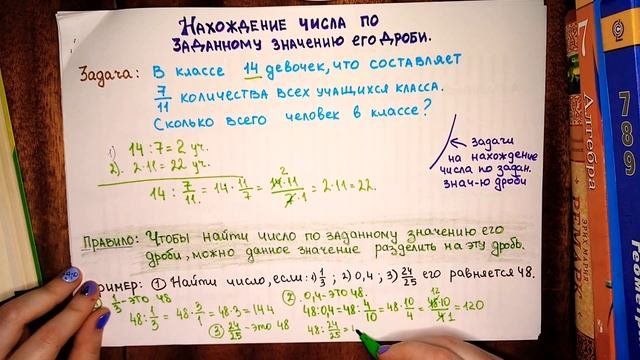 Нахождение числа по
заданному значению его дроби.
Задача: В классе 14 девочек, что составляет
7/11 количества всех учащихся класса.
Сколько всего человек в классе?
1) 14 : 7 = 2 уч.
2). 2·11 = 22 уч.
14 : 7/11 = 14 · 11/7 = 14·11/7·1 = 2·11 = 22.
2
задачи
на нахождение
числа по задан.
знач-ю дроби
Правило: Чтобы найти число по заданному значению его
дроби, можно данное значение разделить на эту дробь.
ример: ① Найти число, если: 1) 1/3; 2) 0,4; 3) 24/25 его равняется 48.
1/3 - это 48
48 : 1/3 = 48 · 3/1 = 48·3 = 144
② 0,4 - это 48.
48 : 0,4 = 48 : 4/10 = 48 · 10/4 = 48·10/4·1 = 120
12
③ 24/25 - это 48
48 : 24/25 =
7
Алгебра
ЭРИХ МАРИЯ
РЕМАРК
7 8 9